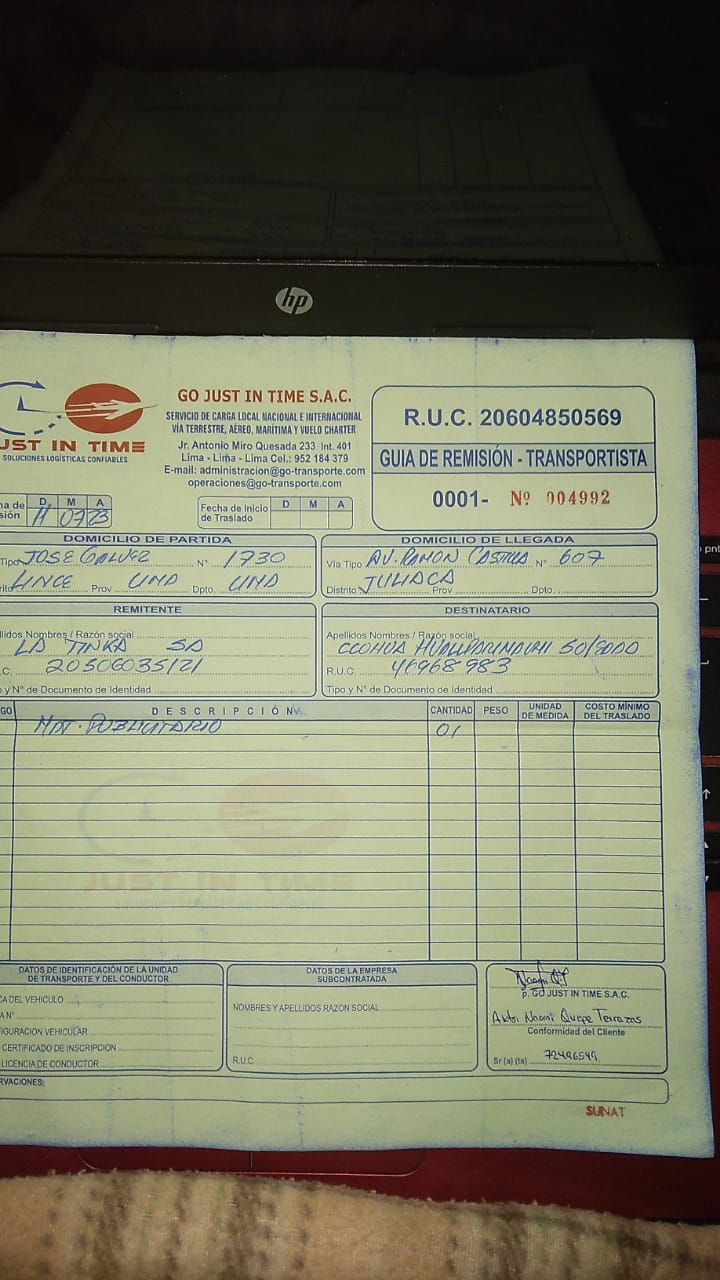 hp
UST IN TIME
SOLUCIONES LOGÍSTICAS CONFIABLES
GO JUST IN TIME S.A.C.
SERVICIO DE CARGA LOCAL NACIONAL E INTERNACIONAL
VÍA TERRESTRE, AÉREO, MARÍTIMA Y VUELO CHARTER
Jr. Antonio Miro Quesada 233 Int. 401
Lima - Lima - Lima Cel.: 952 184 379
E-mail: administracion@go-transporte.com
operaciones@go-transporte.com
R.U.C. 20604850569
GUIA DE REMISIÓN - TRANSPORTISTA
0001- Nº 004992
ha de
sión
D M A
11 07 23
Fecha de Inicio
de Traslado
D M A
DOMICILIO DE PARTIDA
Tipo JOSE GALVEZ N° 1730
rito LINCE Prov LIMA Dpto. LIMA
DOMICILIO DE LLEGADA
Vía Tipo AV. RAMON CASTILLA N° 607
Distrito JULIACA Prov Dpto.
REMITENTE
llidos Nombres / Razón social
LA TINKA SA
.C. 20506035121
o y N° de Documento de Identidad
DESTINATARIO
Apellidos Nombres / Razón social
CCOHUA
R.U.C. 46968983
Tipo y N° de Documento de Identidad
GO DESCRIPCIÓN CANTIDAD PESO UNIDAD DE MEDIDA COSTO MÍNIMO DEL TRASLADO
MAT. PUBLICITARIO 01
JUST IN TIME
DATOS DE IDENTIFICACIÓN DE LA UNIDAD
DE TRANSPORTE Y DEL CONDUCTOR
CA DEL VEHICULO
A N°
IGURACIÓN VEHICULAR
CERTIFICADO DE INSCRIPCION
LICENCIA DE CONDUCTOR
DATOS DE LA EMPRESA
SUBCONTRATADA
NOMBRES Y APELLIDOS RAZON SOCIAL
R.U.C.
p. GO JUST IN TIME S.A.C.
Naomi Quispe Terrazas
Conformidad del Cliente
72496549
Sr (a) (ta)
RVACIONES:
SUNAT